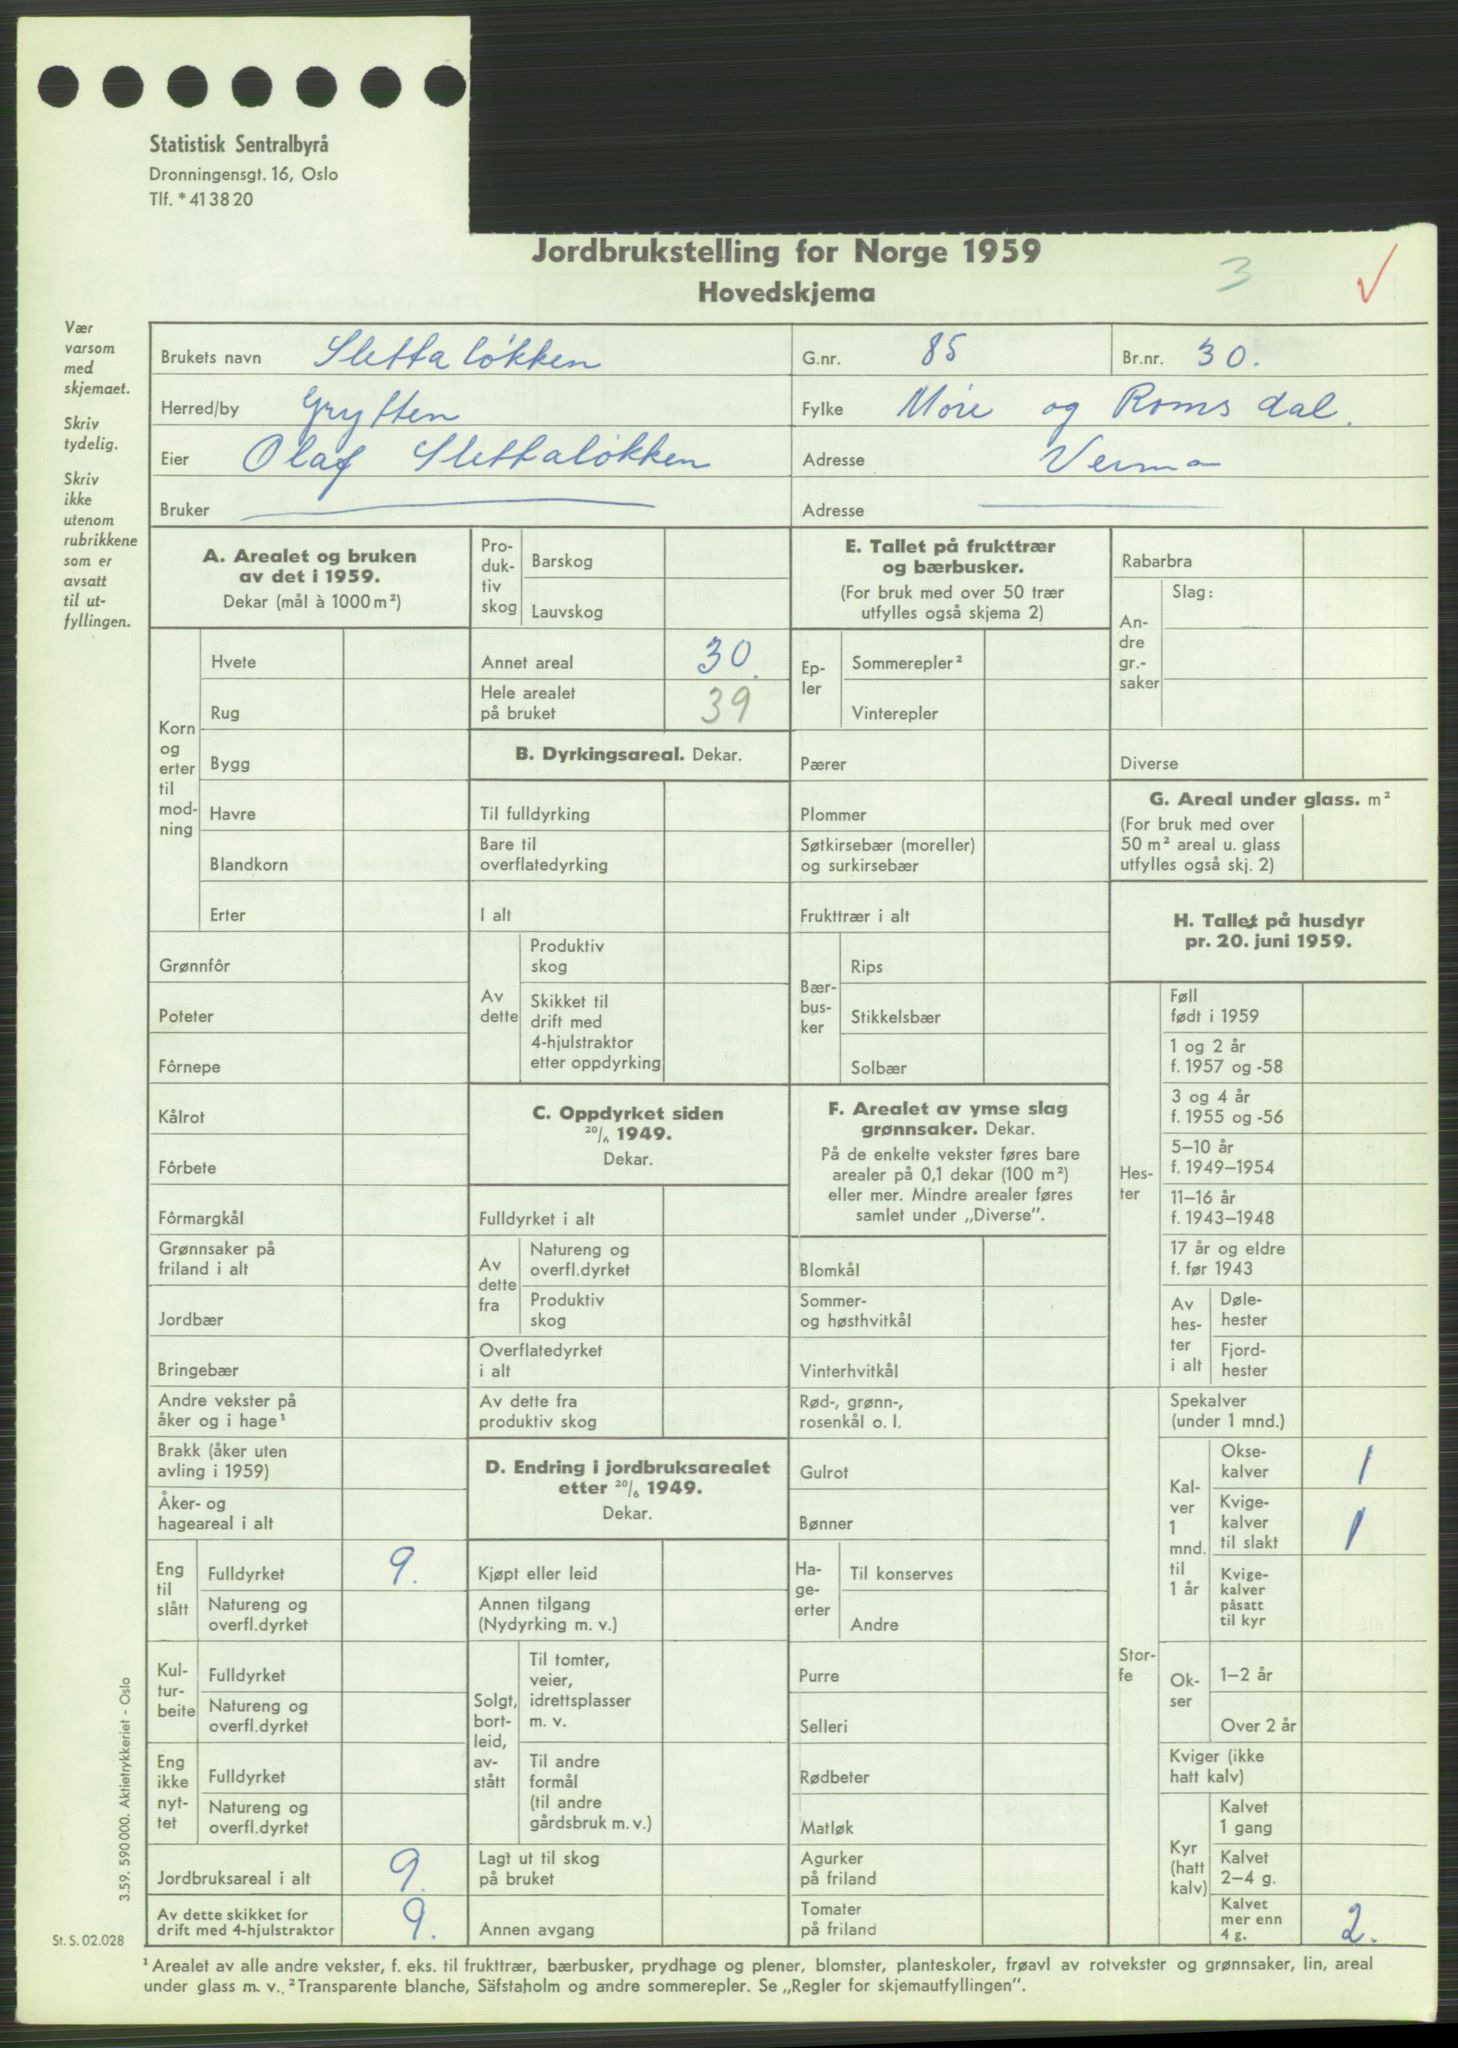 Statistisk Sentralbyrå
Dronningensgt. 16, Oslo
Tlf. *41 38 20
Jordbrukstelling for Norge 1959
Hovedskjema
3
Vær
varsom
med
skjemaet.
Skriv
tydelig.
Skriv
ikke
utenom
rubrikkene
som er
avsatt
til ut-
fyllingen.
Brukets navn Slettaløkken G.nr. 85 Br.nr. 30.
Herred/by Grytten Fylke Møre og Romsdal.
Eier Olaf Slettaløkken Adresse Verma
Bruker Adresse
A. Arealet og bruken
av det i 1959.
Dekar (mål à 1000 m²)
Korn
og
erter
til
mod-
ning
Hvete
Rug
Bygg
Havre
Blandkorn
Erter
Grønnfôr
Poteter
Fôrnepe
Kålrot
Fôrbete
Fôrmargkål
Grønnsaker på
friland i alt
Jordbær
Bringebær
Andre vekster på
åker og i hage¹
Brakk (åker uten
avling i 1959)
Åker- og
hageareal i alt
Eng
til
slått
Fulldyrket 9.
Natureng og
overfl.dyrket
Kul-
tur-
beite
Fulldyrket
Natureng og
overfl.dyrket
Eng
ikke
nyt-
tet
Fulldyrket
Natureng og
overfl.dyrket
Jordbruksareal i alt 9.
Av dette skikket for
drift med 4-hjulstraktor 9.
Pro-
duk-
tiv
skog
Barskog
Lauvskog
Annet areal 30.
Hele arealet
på bruket 39
B. Dyrkingsareal. Dekar.
Til fulldyrking
Bare til
overflatedyrking
I alt
Av
dette
Produktiv
skog
Skikket til
drift med
4-hjulstraktor
etter oppdyrking
C. Oppdyrket siden
20/6 1949.
Dekar.
Fulldyrket i alt
Av
dette
fra
Natureng og
overfl.dyrket
Produktiv
skog
Overflatedyrket
i alt
Av dette fra
produktiv skog
D. Endring i jordbruksarealet
etter 20/6 1949.
Dekar.
Kjøpt eller leid
Annen tilgang
(Nydyrking m. v.)
Solgt,
bort-
leid,
av-
stått
Til tomter,
veier,
idrettsplasser
m. v.
Til andre
formål
(til andre
gårdsbruk m. v.)
Lagt ut til skog
på bruket
Annen avgang
E. Tallet på frukttrær
og bærbusker.
(For bruk med over 50 trær
utfylles også skjema 2)
Ep-
ler
Sommerepler²
Vinterepler
Pærer
Plommer
Søtkirsebær (moreller)
og surkirsebær
Frukttrær i alt
Bær-
bus-
ker
Rips
Stikkelsbær
Solbær
F. Arealet av ymse slag
grønnsaker. Dekar.
På de enkelte vekster føres bare
arealer på 0,1 dekar (100 m²)
eller mer. Mindre arealer føres
samlet under „Diverse”.
Blomkål
Sommer-
og høsthvitkål
Vinterhvitkål
Rød-, grønn-,
rosenkål o. l.
Gulrot
Bønner
Ha-
ge-
erter
Til konserves
Andre
Purre
Selleri
Rødbeter
Matløk
Agurker
på friland
Tomater
på friland
Rabarbra
An-
dre
gr.-
saker
Slag:
Diverse
G. Areal under glass. m²
(For bruk med over
50 m² areal u. glass
utfylles også skj. 2)
H. Tallet på husdyr
pr. 20. juni 1959.
Hes-
ter
Føll
født i 1959
1 og 2 år
f. 1957 og -58
3 og 4 år
f. 1955 og -56
5–10 år
f. 1949–1954
11–16 år
f. 1943–1948
17 år og eldre
f. før 1943
Av
hes-
ter
i alt
Døle-
hester
Fjord-
hester
Stor-
fe
Spekalver
(under 1 mnd.)
Kal-
ver
1
mnd.
til
1 år
Okse-
kalver 1
Kvige-
kalver
til slakt 1
Kvige-
kalver
påsatt
til kyr
Ok-
ser
1–2 år
Over 2 år
Kviger (ikke
hatt kalv)
Kyr
(hatt
kalv)
Kalvet
1 gang
Kalvet
2–4 g.
Kalvet
mer enn
4 g. 2.
3.59. 590 000. Aktietrykkeriet - Oslo
St. S. 02.028
¹ Arealet av alle andre vekster, f. eks. til frukttrær, bærbusker, prydhage og plener, blomster, planteskoler, frøavl av rotvekster og grønnsaker, lin, areal
under glass m. v., ² Transparente blanche, Säfstaholm og andre sommerepler. Se „Regler for skjemautfyllingen”.